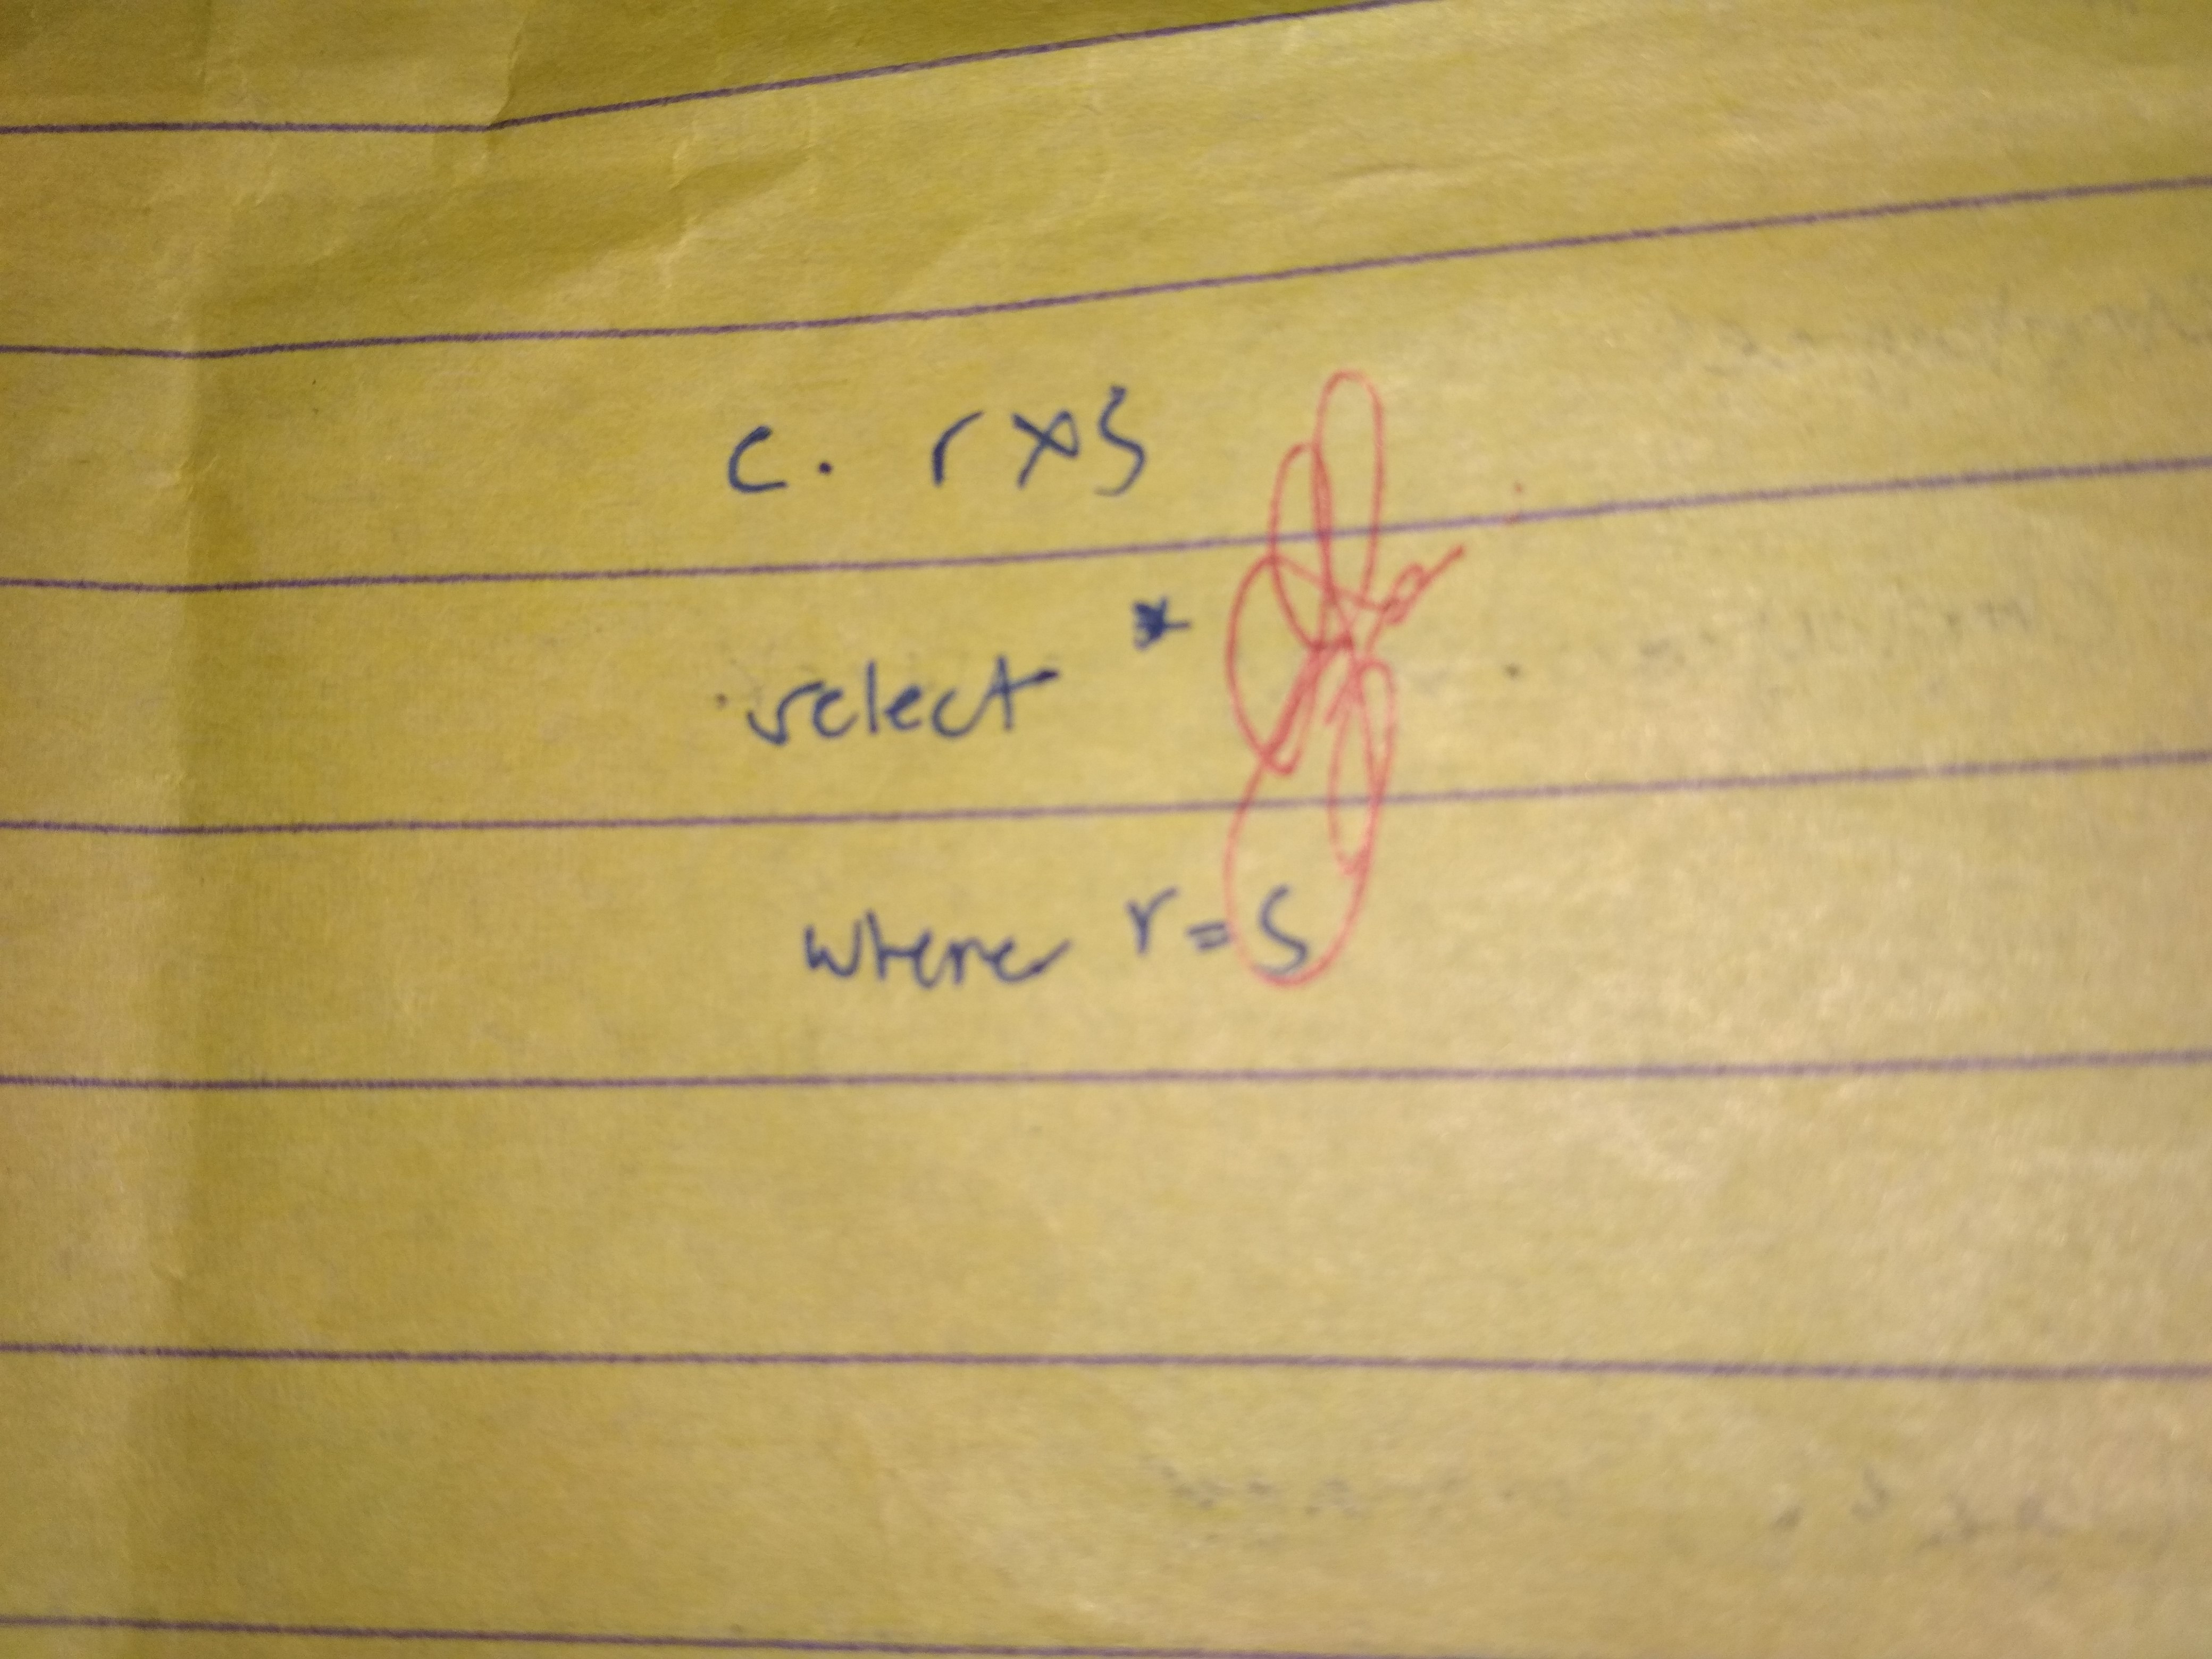 c. r x s
select *
where r = s